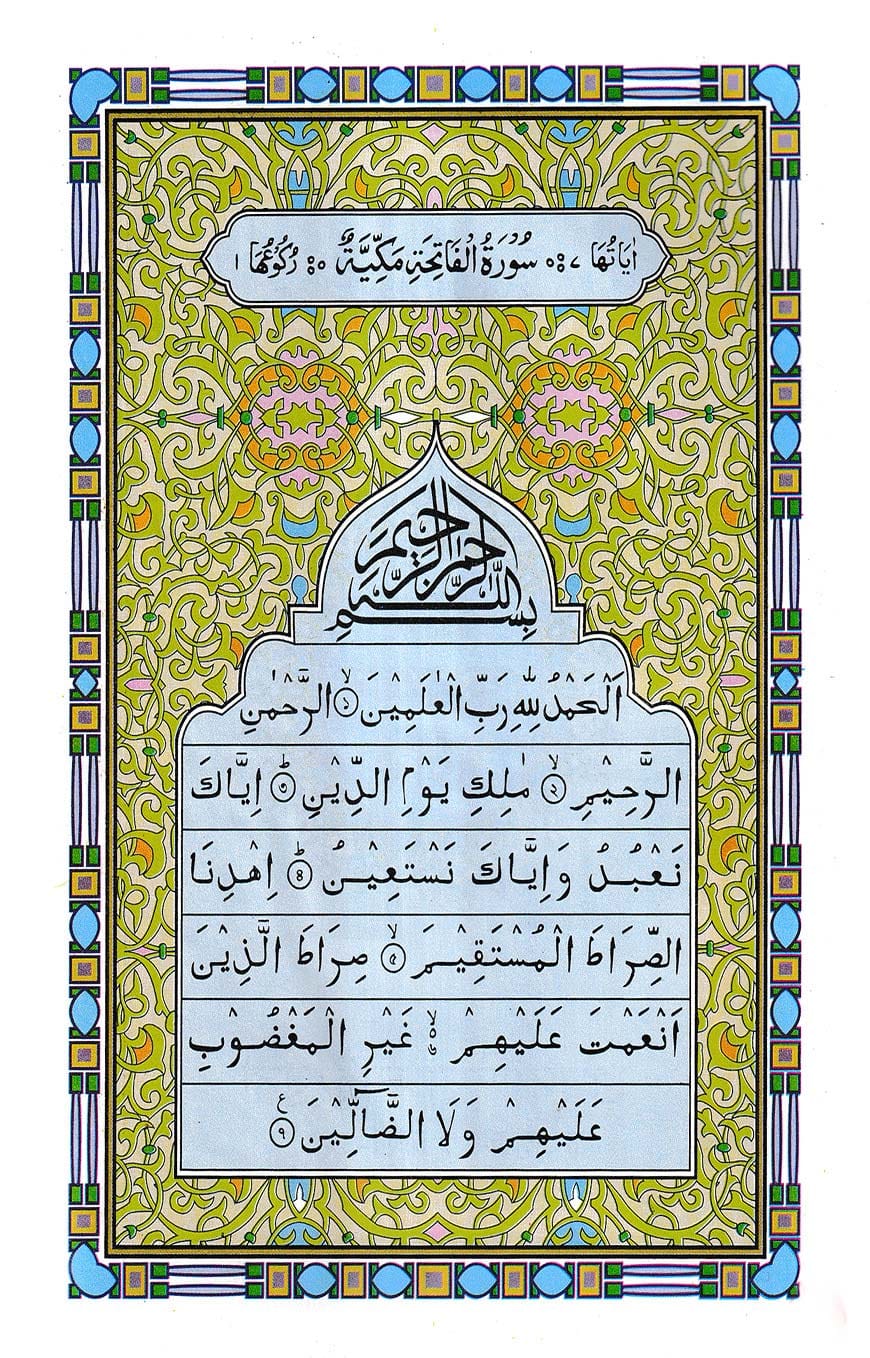 اٰيَاتُهَا ٧ سُوْرَةُ الْفَاتِحَةِ مَكِّيَّةٌ رُكُوْعُهَا ١
بِسْمِ اللّٰهِ الرَّحْمٰنِ الرَّحِيْمِ
اَلْحَمْدُ لِلّٰهِ رَبِّ الْعٰلَمِيْنَ ۙ﴿۱﴾ الرَّحْمٰنِ
الرَّحِيْمِ ۙ﴿۲﴾ مٰلِكِ يَوْمِ الدِّيْنِ ؕ﴿۳﴾ اِيَّاكَ
نَعْبُدُ وَاِيَّاكَ نَسْتَعِيْنُ ؕ﴿۴﴾ اِهْدِنَا
الصِّرَاطَ الْمُسْتَقِيْمَ ۙ﴿۵﴾ صِرَاطَ الَّذِيْنَ
اَنْعَمْتَ عَلَيْهِمْ ۙ۬ۦ غَيْرِ الْمَغْضُوْبِ
عَلَيْهِمْ وَلَا الضَّآلِّيْنَ ﴿۹﴾ ع